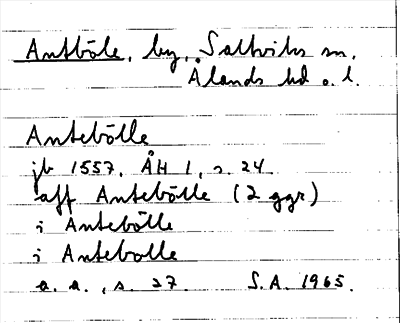 Antböle, by, Saltviks sn,
Ålands hd o. l.
Antebölle
jb 1557, ÅH 1, s. 24
aff Antebölle (2 ggr)
i Antebölle
i Antebolle
a. a., s. 27. S.A. 1965.